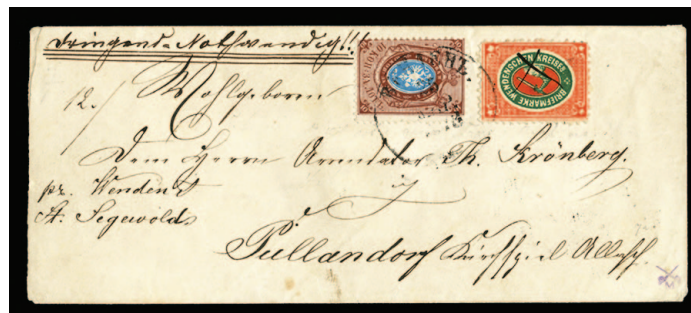 dringend=Nothwendig!!!
12./ Wohlgeboren
Dem Herrn Arendator Th. Krönberg.
pr. Wenden
St. Segewolds
Püllandorf Kirchspiel Allasch.
BRIEFMARKE WENDENSCHEN KREISES